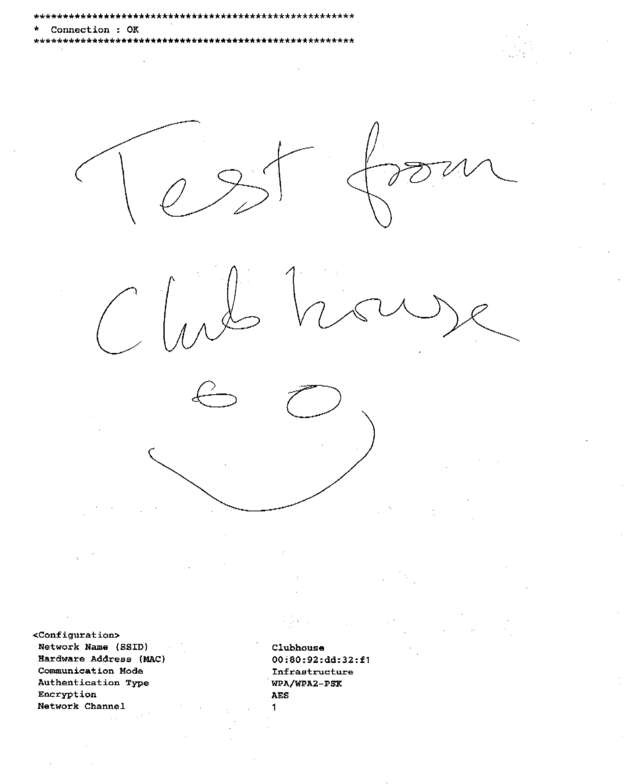 *******************************************************
* Connection : OK
*******************************************************
Test from
Clubhouse
<Configuration>
Network Name (SSID) Clubhouse
Hardware Address (MAC) 00:80:92:dd:32:f1
Communication Mode Infrastructure
Authentication Type WPA/WPA2-PSK
Encryption AES
Network Channel 1